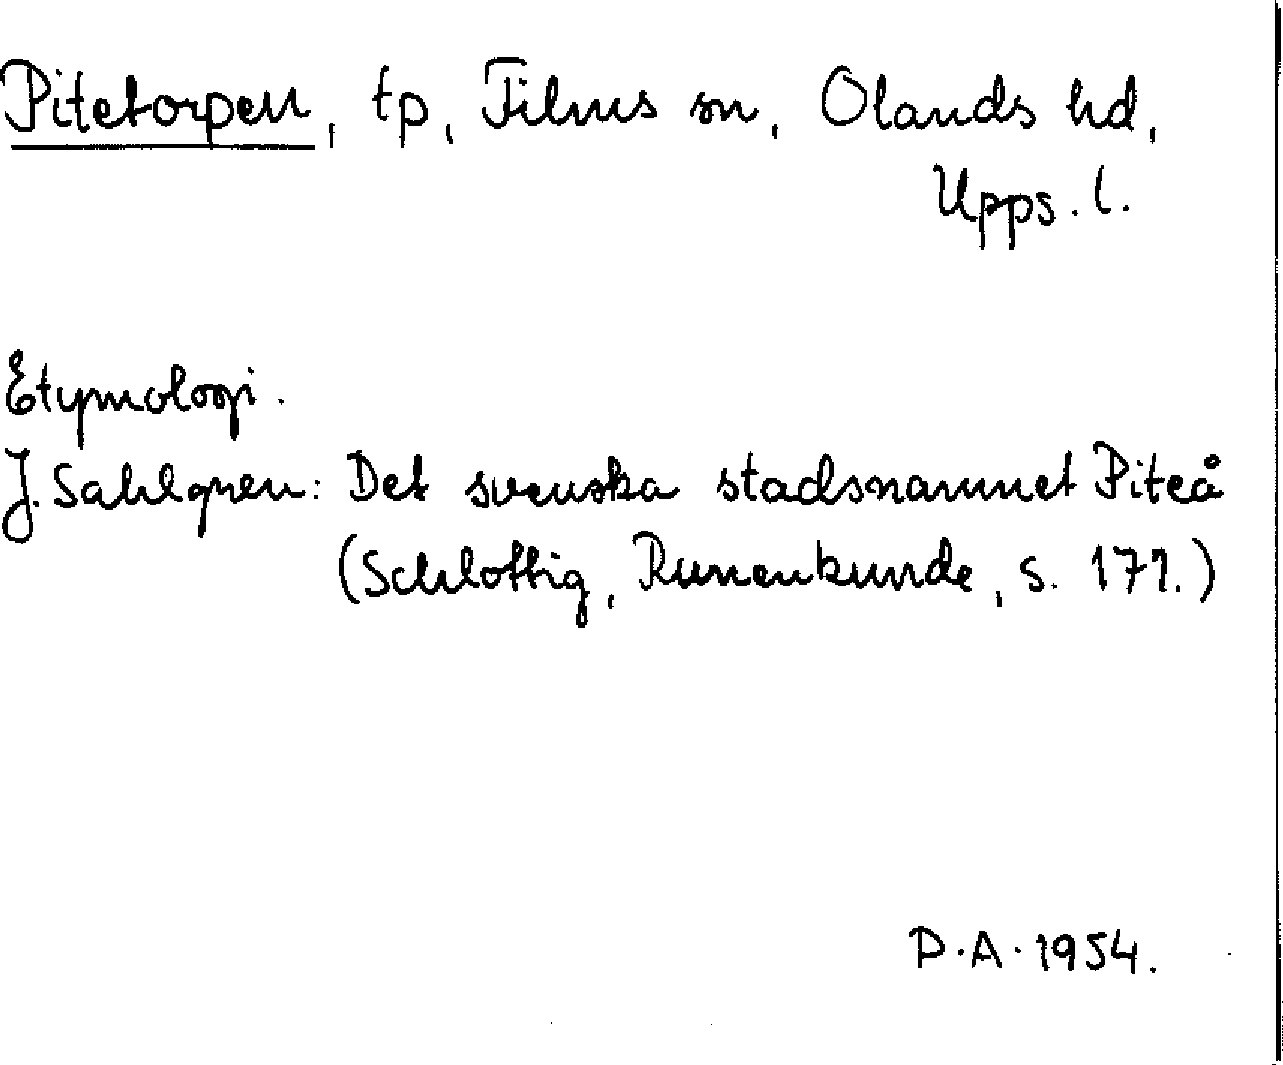 Pitetorpen, tp, Films sn, Olands hd,
Upps. l.
Etymologi.
J. Sahlgren: Det svenska stadsnamnet Piteå
(Schlottig, Runenkunde, s. 171.)
P.A. 1954.